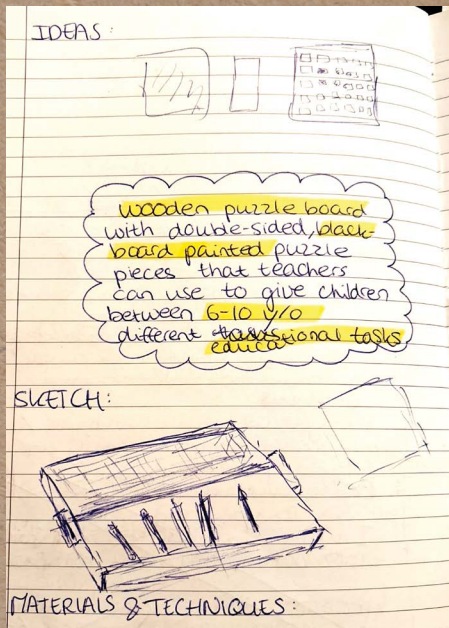 IDEAS:
wooden puzzle board
with double-sided, black-
board painted puzzle
pieces that teachers
can use to give children
between 6-10 y/o
different educational tasks
SKETCH:
MATERIALS & TECHNIQUES: